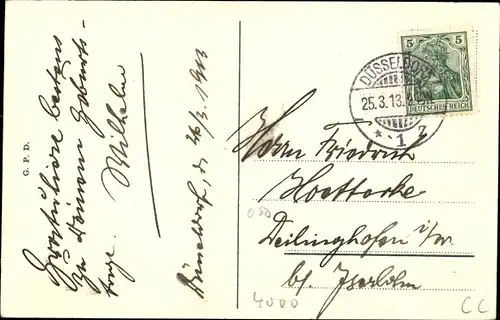 G. P. D.
Gratuliere bestens
zu Deinem Geburts-
tage. Wilhelm
Düsseldorf, d. 26/3. 1913
5 5
DEUTSCHES REICH
DÜSSELDORF
25.3.13.
* 1 z
Herrn Friedrich
Deilinghofen i/W.
bei Iserlohn
050
4000
CC